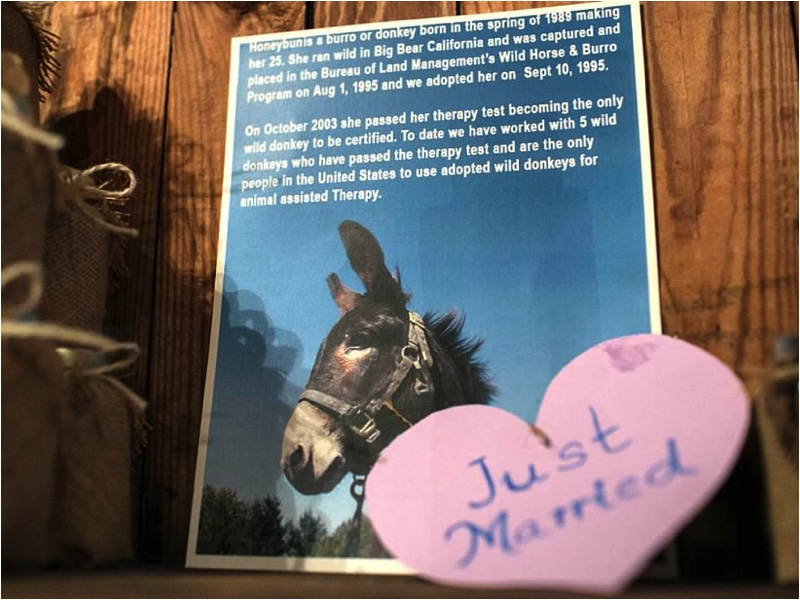 Honeybunis a burro or donkey born in the spring of 1989 making
her 25. She ran wild in Big Bear California and was captured and
placed in the Bureau of Land Management's Wild Horse & Burro
Program on Aug 1, 1995 and we adopted her on Sept 10, 1995.
On October 2003 she passed her therapy test becoming the only
wild donkey to be certified. To date we have worked with 5 wild
donkeys who have passed the therapy test and are the only
people in the United States to use adopted wild donkeys for
animal assisted Therapy.
Just
Married